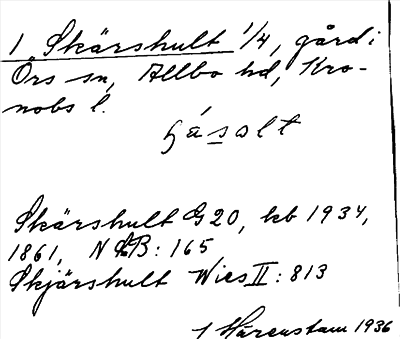 1 Skärshult 1/4, gård i
Örs sn, Allbo hd, Kro-
nobs l.
Skärshult G 20, kb 1934,
1861, NLB: 165
Skjärshult Wies II: 813
J Härenstam 1936